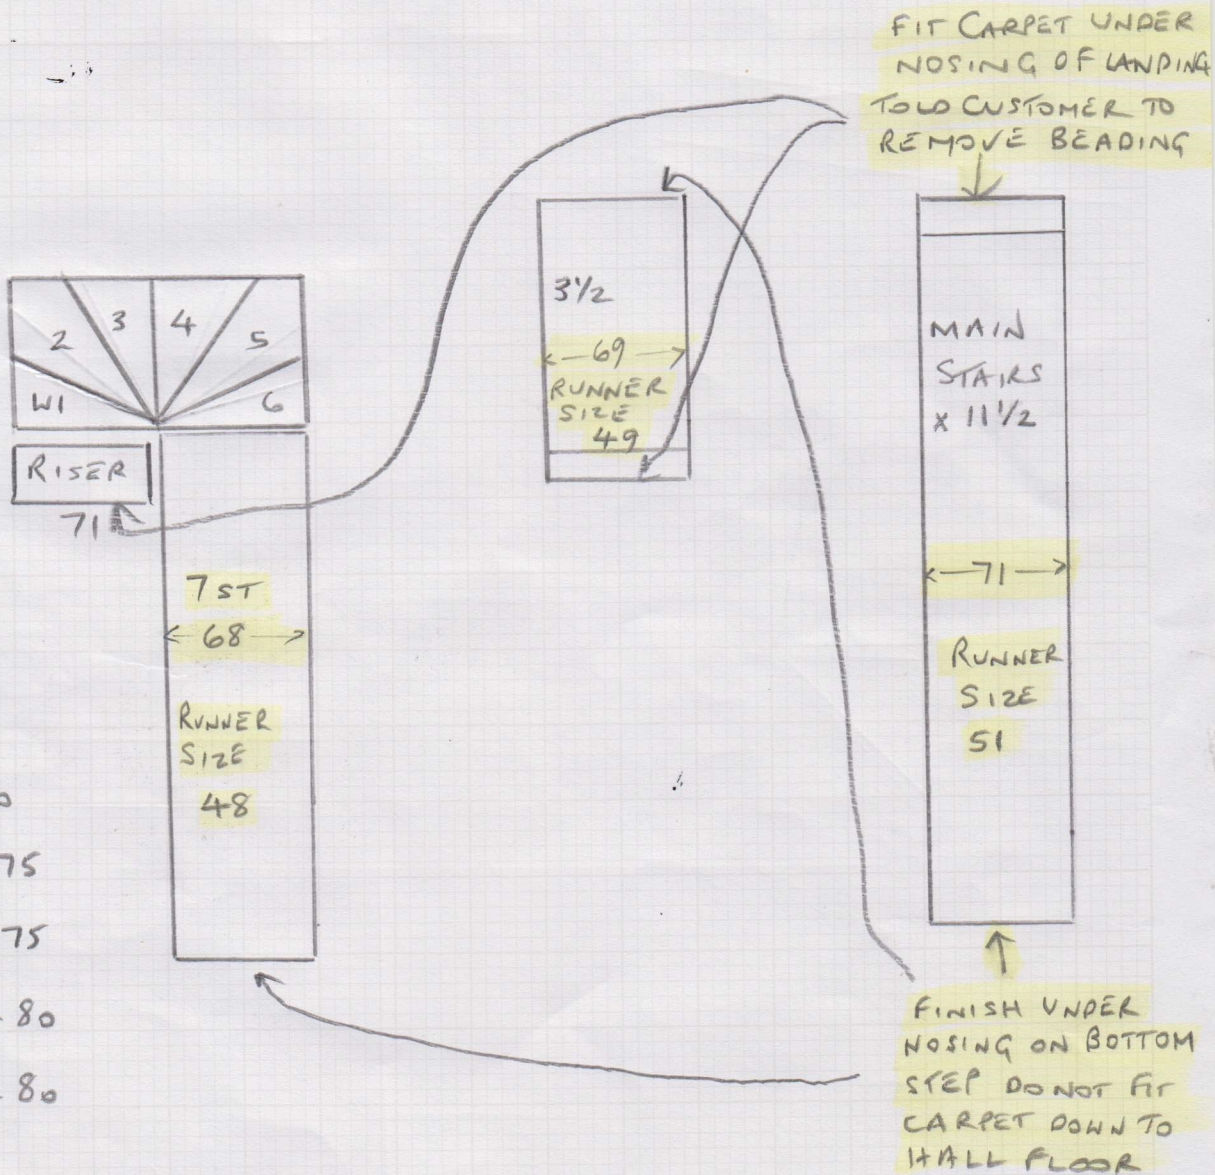 FIT CARPET UNDER
NOSING OF LANDING
TOLD CUSTOMER TO
REMOVE BEADING
2
3
4
5
W1
6
RISER
71
7 ST
68
RUNNER
SIZE
48
3 1/2
69
RUNNER
SIZE
49
MAIN
STAIRS
x 11 1/2
71
RUNNER
SIZE
51
75
75
80
80
FINISH UNDER
NOSING ON BOTTOM
STEP DO NOT FIT
CARPET DOWN TO
HALL FLOOR